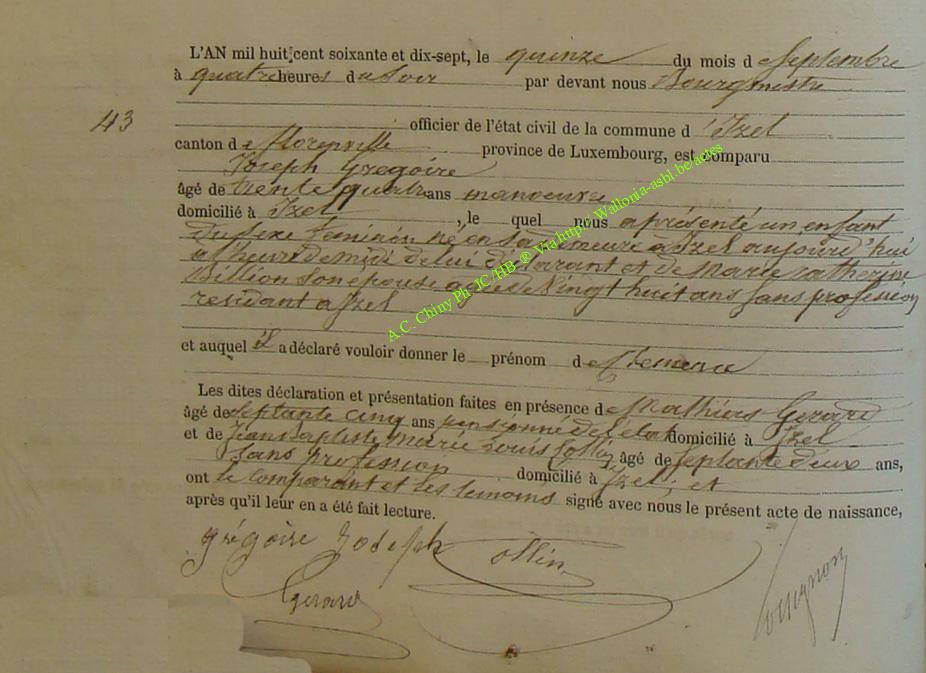 L'AN mil huit cent soixante et dix-sept, le quinze du mois de Septembre
à quatre heures du Soir par devant nous Bourgmestre
43
officier de l'état civil de la commune d'Izel
canton de florenville province de Luxembourg, est comparu
Joseph Gregoire
âgé de trente quatre ans manoeuvre
domicilié à Izel, le quel nous a présenté un enfant
du sexe feminin né en sa demeure a Izel aujourd'hui
a l'heure de midi de lui déclarant et de Marie Catherine
Billion son épouse agée de Vingt huit ans sans profession
residant a Izel
et auquel il a déclaré vouloir donner le prénom de
Les dites déclaration et présentation faites en présence de Mathias Gerard
âgé de septante cinq ans pensionné de l'état domicilié à Izel
et de Jean Baptiste Marie Louis Collin âgé de septante deux ans,
sans profession domicilié à Izel; et
ont le comparant et les temoins signé avec nous le présent acte de naissance,
après qu'il leur en a été fait lecture.
grégoire Joseph Collin
Gerard
A.C. Chiny Ph JC/HB ® Via http:/ Wallonia-asbl.be/actes